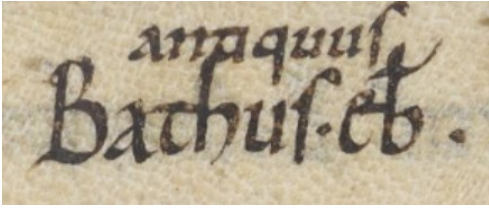 antiquus
Bathus · eb̄ .